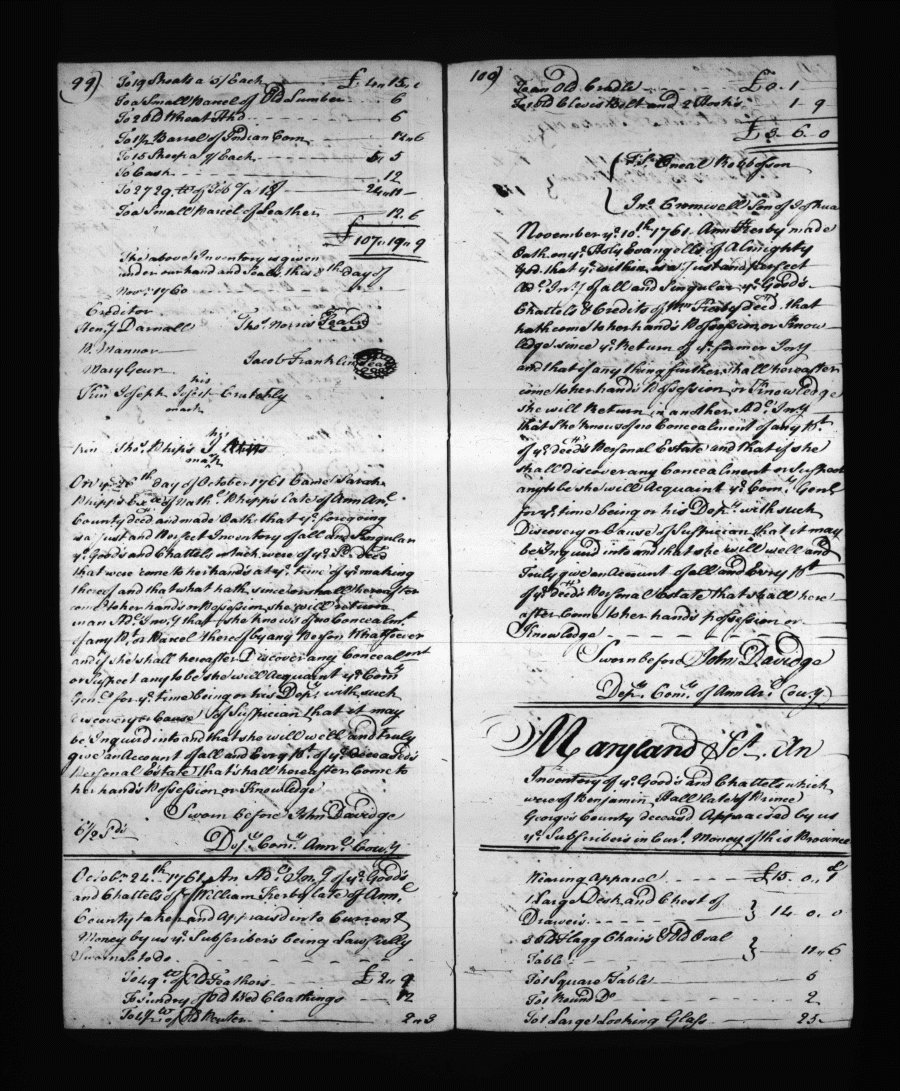 99)
To 19 Shoats a 5/ Each £ 4 " 15 "
To a Small Parcel of Old Lumber 6
To 2 Old Wheat Fhd 6
To 1½ Barrel of Indian Corn 12 " 6
To 15 Sheep a 7/ Each 5 " 5
To Cash 12
To 2729 wt of Tob
To a Small Parcel of Leather 12 . 6
£ 107 " 19 " 9
The above Inventory is given
under our hand and Seals this 8th day of
Novr. 1760
Creditor
Heny. Darnall Thos. Norris Seal
W. Mannor
Mary Geur Jacob Franklin Seal
his
Kin Joseph Crutchly
mark
his
Kin Thos. Phips
mark
On ye 26th day of October 1761 Came Sarah
Phipps Exx. of Nathl. Phipps late of Ann Arl.
County deced and made Oath that ye. foregoing
is a Just and Perfect Inventory of all and Singular
ye. Goods and Chattels which were of ye. Sd. deced
that were come to her hands at ye. time of ye. making
thereof and that what hath since or shall hereafter
come to her hands or Possession she will return
in an Ad. Invy. that she knows of no Concealmt.
of any Pt. or Parcel thereof by any Person Whatsoever
and if she shall hereafter Discover any Concealmt
or Suspect any to be she will Acquaint ye. Comy.
Genl. for ye. time being or his Depy. with such
discovery or Cause of Suspician that it may
be Inquird into and that she will well and truly
give an Account of all and Evry Pt. of ye. deceased's
Personal Estate that shall hereafter Come to
her hands Possession or Knowledge
Sworn before John Davidge
6/2 Pd.
Depy. Comy. Ann Cou,y
Octobr. 24th. 1761 An Adl. Invy. of ye. Goods
and Chattels of William Kerby late of Ann Arl.
County taken and Appraisd in to Current
Money by us ye. Subscribers being Lawfully
Sworn so to do
To 49 wt of Old Feathers £ 2 "
To Sundry of Old Bed Cloathings 12
of Old Pewter 2 " 3
100)
To an Old Cradle £ 0 . 1
To 1 Old Clevis Bolt and 2 Hooks 1 . 9
£ 3 . 6 . 0
Oneal Robbosson
Jno. Cromwell Son of Joshua
November ye. 10th. 1761. Ann Kerby made
Oath on ye. Holy Evangells of Almighty
God. that ye. within is a Just and perfect
Ad. Invy. of all and Singular ye. Goods.
Chattels & Credits of Wm. Kerby deced. that
hath come to her hands Possession or Know-
ledge since ye. Return of ye. former Invy
and that if any thing further shall hereafter
come to her hands Possession or Knowledge
she will Return in another Ad. Invy
that She knows of no Concealment of any Pt.
of ye. deceds Personal Estate and that if she
shall discover any Concealment or Suspect
any to be she will Acquaint ye. Comy. Genl.
for ye. time being or his Depy. with such
Discovery or Cause of Suspician that it may
be Inquird into and that she will well and
Truly give an Account of all and Evry Pt
of ye. deceds Personal Estate that shall here
after Come to her hands possession or
Knowledge
Sworn before John Davidge
Depy. Comy. of Ann Arl. Cou,y
Maryland Sct. An
Inventory of ye. Goods and Chattels which
were of Benjamin Hall late of Prince
George's County deceasd. Appraised by us
ye. Subscribers in Curt. Money of this Province
Wearing Apparel £ 15 . 0 .
1 Large Desk and Chest of
Drawers } 14 . 0 . 0
Flagg Chairs & Old Oval
Table } 11 " 6
To 1 Square Table 6
To 1 Round Do 2
To 1 Large Looking Glass 25